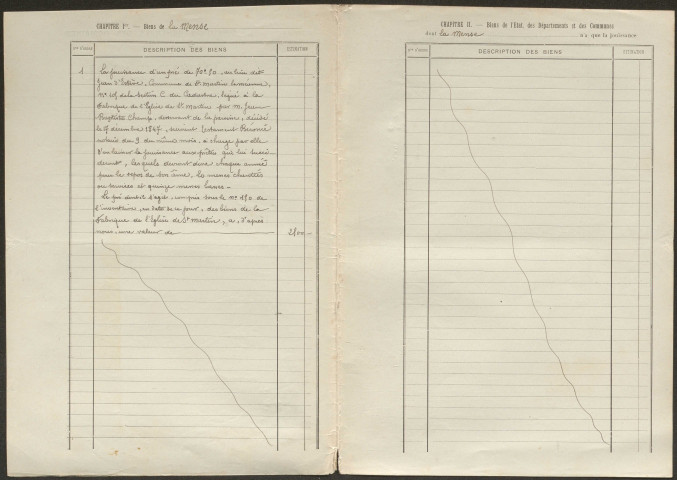 CHAPITRE Ier. — Biens de la Mense
Nos d'ordre
DESCRIPTION DES BIENS
ESTIMATION
1 La jouissance d'un pré de 70a 90, au lieu dit
Commune de St Martin
no de la Section C du Cadastre, légué à la
Fabrique de l'Eglise de St Martin par M. Jean
Baptiste Champ, desservant de la paroisse, décédé
le décembre 1847, suivant testament
notaire du 9 du même mois, à charge par elle
d'en laisser la jouissance aux prêtres qui lui succè
deront, lesquels devront dire chaque année
pour le repos de son âme, messes chantées
ou services et quinze messes basses —
Le pré dont il s'agit, compris sous le no de
l'inventaire, en date de ce jour, des biens de la
Fabrique de l'Eglise de St Martin, a, d'après
nous, une valeur de 2100 —
CHAPITRE II. — Biens de l'Etat, des Départements et des Communes
dont la Mense n'a que la jouissance
Nos d'ordre
DESCRIPTION DES BIENS
ESTIMATION